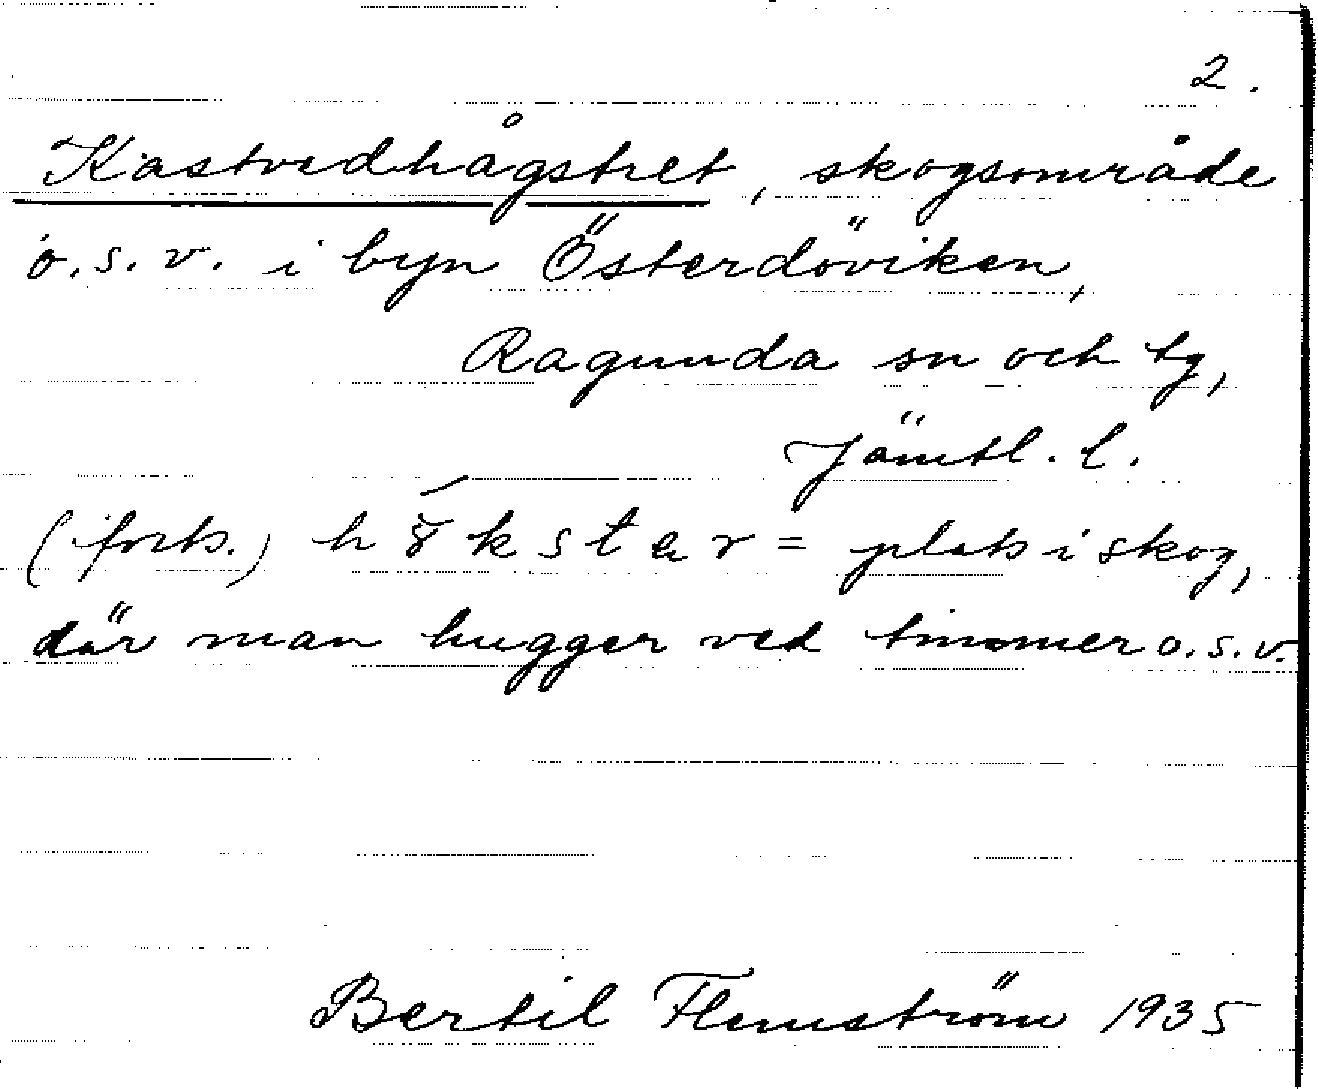 2.
Kastvedhågstret, skogsområde
o.s.v. i byn Österdöviken,
Ragunda sn och tg,
Jämtl. l.
(forts.) = plats i skog,
där man hugger ved timmer o.s.v.
Bertil Flemström 1935